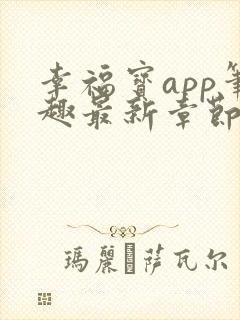 幸福寶app筆
趣最新章節
瑪麗�萨瓦尔